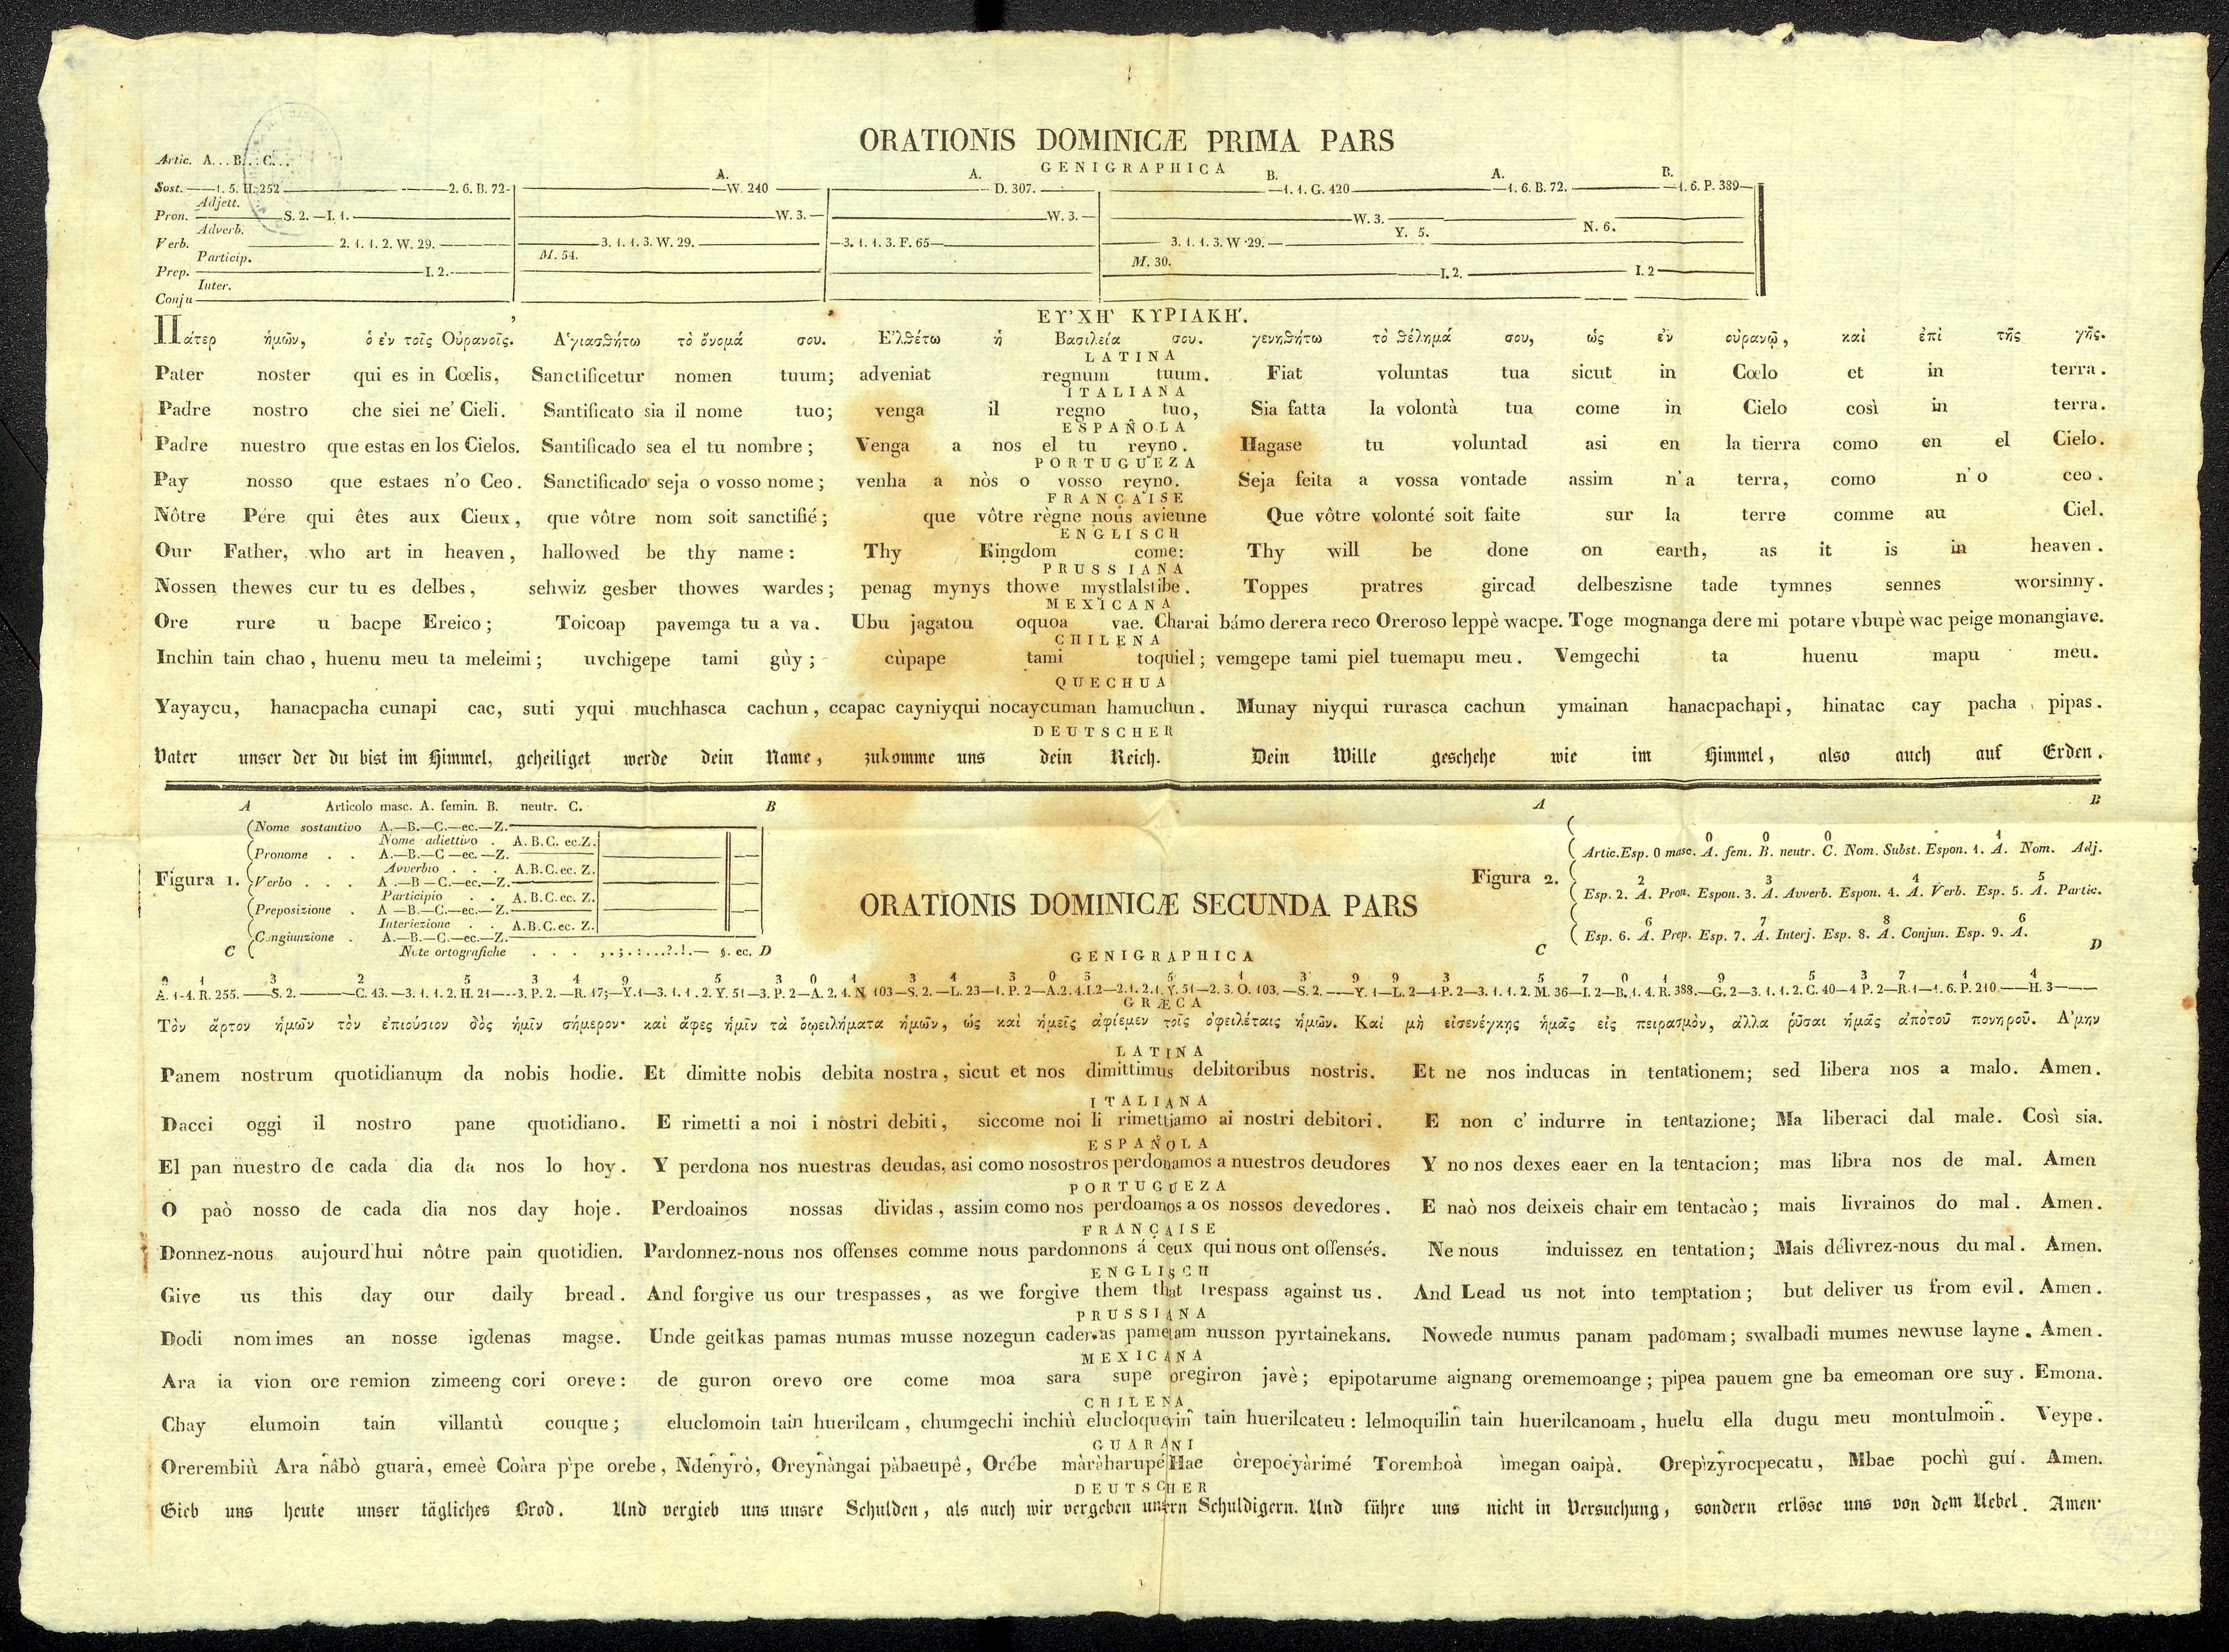 ORATIONIS DOMINICÆ PRIMA PARS
GENIGRAPHICA
Artic. A...B...C...
A. A. B. A. B.
Sost. —1. 5. H. 252 — 2. 6. B. 72- —W. 240 — D. 307. —1. 1. G. 420 —1. 6. B. 72. —1. 6. P. 389—
Adjett.
Pron. —S. 2. —I. 1. —W. 3.— —W. 3.— —W. 3.—
Adverb. Y. 5. N. 6.
Verb. — 2. 1. 1. 2. W. 29. — —3. 1. 1. 3. W. 29. — —3. 1. 1. 3. F. 65— 3. 1. 1. 3. W. 29. —
Particip. M. 54. M. 30.
Prep. —I. 2.— —I. 2. — I. 2—
Inter.
Conju—
ΕΥ᾿ΧΗ᾿ ΚΥΡΙΑΚΗ´.
Πάτερ ἡμῶν, ὁ ἐν τοῖς Οὐρανοῖς. Α῾γιασθήτω τὸ ὄνομά σου. Ε᾿λθέτω ἡ Βασιλεία σου. γενηθήτω τὸ θέλημά σου, ὡς ἐν οὐρανῷ, καὶ ἐπὶ τῆς γῆς.
LATINA
Pater noster qui es in Cœlis, Sanctificetur nomen tuum; adveniat regnum tuum. Fiat voluntas tua sicut in Cœlo et in terra.
ITALIANA
Padre nostro che siei ne' Cieli. Santificato sia il nome tuo; venga il regno tuo, Sia fatta la volontà tua come in Cielo così in terra.
ESPAÑOLA
Padre nuestro que estas en los Cielos. Santificado sea el tu nombre; Venga a nos el tu reyno. Hagase tu voluntad asi en la tierra como en el Cielo.
PORTUGUEZA
Pay nosso que estaes n'o Ceo. Sanctificado seja o vosso nome; venha a nòs o vosso reyno. Seja feita a vossa vontade assim n'a terra, como n'o ceo.
FRANÇAISE
Nôtre Pére qui êtes aux Cieux, que vôtre nom soit sanctifié; que vôtre règne nous avienne Que vôtre volonté soit faite sur la terre comme au Ciel.
ENGLISCH
Our Father, who art in heaven, hallowed be thy name: Thy Kingdom come: Thy will be done on earth, as it is in heaven.
PRUSSIANA
Nossen thewes cur tu es delbes, sehwiz gesber thowes wardes; penag mynys thowe mystlalstibe. Toppes pratres gircad delbeszisne tade tymnes sennes worsinny.
MEXICANA
Ore rure u bacpe Ereico; Toicoap pavemga tu a va. Ubu jagatou oquoa vae. Charai bámo derera reco Oreroso leppè wacpe. Toge mognanga dere mi potare vbupè wac peige monangiave.
CHILENA
Inchin tain chao, huenu meu ta meleimi; uvchigepe tami gùy; cùpape tami toquiel; vemgepe tami piel tuemapu meu. Vemgechi ta huenu mapu meu.
QUECHUA
Yayaycu, hanacpacha cunapi cac, suti yqui muchhasca cachun, ccapac cayniyqui nocaycuman hamuchun. Munay niyqui rurasca cachun ymainan hanacpachapi, hinatac cay pacha pipas.
DEUTSCHER
Vater unser der du bist im Himmel, geheiliget werde dein Name, zukomme uns dein Reich. Dein Wille geschehe wie im Himmel, also auch auf Erden.
A Articolo masc. A. femin. B. neutr. C. B
Nome sostantivo A.—B.—C.—ec.—Z.
Nome adiettivo . A. B. C. ec. Z.
Pronome . . A.—B.—C—ec.—Z.
Avverbio . . . A.B.C. ec. Z.
Figura 1. Verbo . . . A.—B—C.—ec.—Z.
Participio . . A.B.C. ec. Z.
Preposizione . A—B.—C.—ec.—Z.
Interiezione . . A.B.C. ec. Z.
Congiunzione . A.—B.—C.—ec.—Z.
C Note ortografiche . . . , . ; . : . ...?.!.— §. ec. D
A B
0 0 0 1
Artic. Esp. 0 masc. A. fem. B. neutr. C. Nom. Subst. Espon. 1. A. Nom. Adj.
Figura 2.
2 3 4 5
Esp. 2. A. Pron. Espon. 3. A. Avverb. Espon. 4. A. Verb. Esp. 5. A. Partic.
6 7 8 6
Esp. 6. A. Prep. Esp. 7. A. Interj. Esp. 8. A. Conjun. Esp. 9. A.
C D
ORATIONIS DOMINICÆ SECUNDA PARS
GENIGRAPHICA
A. 1-4. R. 255. —S. 2.—C. 43.—3. 1. 1. 2. H. 21—3. P. 2.—R. 17;—Y. 1—3. 1. 1. 2. Y. 51—3. P. 2—A. 2. 4. N 103—S. 2.—L. 23—1. P. 2—A. 2. 4. I. 2—2. 1. 2. 1. Y. 51—2. 3. O. 103.—S. 2.—Y. 1—L. 2—4-P. 2—3. 1. 1. 2. M. 36—I. 2—B. 1. 4. R. 388.—G. 2—3. 1. 1. 2. C. 40—4 P. 2—R. 1—1. 6. P. 210.—H. 3—
GRÆCA
Τὸν ἄρτον ἡμῶν τὸν ἐπιούσιον δὸς ἡμῖν σήμερον· καὶ ἄφες ἡμῖν τὰ ὀφειλήματα ἡμῶν, ὡς καὶ ἡμεῖς ἀφίεμεν τοῖς ὀφειλέταις ἡμῶν. Καὶ μὴ εἰσενέγκης ἡμᾶς εἰς πειρασμὸν, ἀλλα ῥῦσαι ἡμᾶς ἀπὸτοῦ πονηροῦ. Α᾿μην
LATINA
Panem nostrum quotidianum da nobis hodie. Et dimitte nobis debita nostra, sicut et nos dimittimus debitoribus nostris. Et ne nos inducas in tentationem; sed libera nos a malo. Amen.
ITALIANA
Dacci oggi il nostro pane quotidiano. E rimetti a noi i nostri debiti, siccome noi li rimettiamo ai nostri debitori. E non c' indurre in tentazione; Ma liberaci dal male. Così sia.
ESPAÑOLA
El pan nuestro de cada dia da nos lo hoy. Y perdona nos nuestras deudas, asi como nosostros perdonamos a nuestros deudores Y no nos dexes eaer en la tentacion; mas libra nos de mal. Amen
PORTUGUEZA
O paò nosso de cada dia nos day hoje. Perdoainos nossas dividas, assim como nos perdoamos a os nossos devedores. E naò nos deixeis chair em tentacào; mais livrainos do mal. Amen.
FRANÇAISE
Donnez-nous aujourd'hui nôtre pain quotidien. Pardonnez-nous nos offenses comme nous pardonnons á ceux qui nous ont offensés. Ne nous induissez en tentation; Mais délivrez-nous du mal. Amen.
ENGLISCH
Give us this day our daily bread. And forgive us our trespasses, as we forgive them that trespass against us. And Lead us not into temptation; but deliver us from evil. Amen.
PRUSSIANA
Dodi nomimes an nosse igdenas magse. Unde geitkas pamas numas musse nozegun pametam nusson pyrtainekans. Nowede numus panam padomam; swalbadi mumes newuse layne. Amen.
MEXICANA
Ara ia vion ore remion zimeeng cori oreve: de guron orevo ore come moa sara supe oregiron javè; epipotarume aignang orememoange; pipea pauem gne ba emeoman ore suy. Emona.
CHILENA
Chay elumoin tain villantù couque; eluclomoin tain huerilcam, chumgechi inchiù elucloquevin̂ tain huerilcateu: lelmoquilin̂ tain huerilcanoam, huelu ella dugu meu montulmoin̂. Veype.
GUARANI
Orerembiù Ara n̂âbò guarà, emeè Coàra pìpe orebe, Nden̂yrò, Oreyn̂àngai pàbaeupê, Orébe màràharupé Hae òrepoéyàrimé Toremboà ìmegan oaipà. Orepìzyrocpecatu, Mbae pochì guí. Amen.
DEUTSCHER
Gieb uns heute unser tägliches Brod. Und vergieb uns unsre Schulden, als auch wir vergeben unsern Schuldigern. Und führe uns nicht in Versuchung, sondern erlöse uns von dem Uebel. Amen.